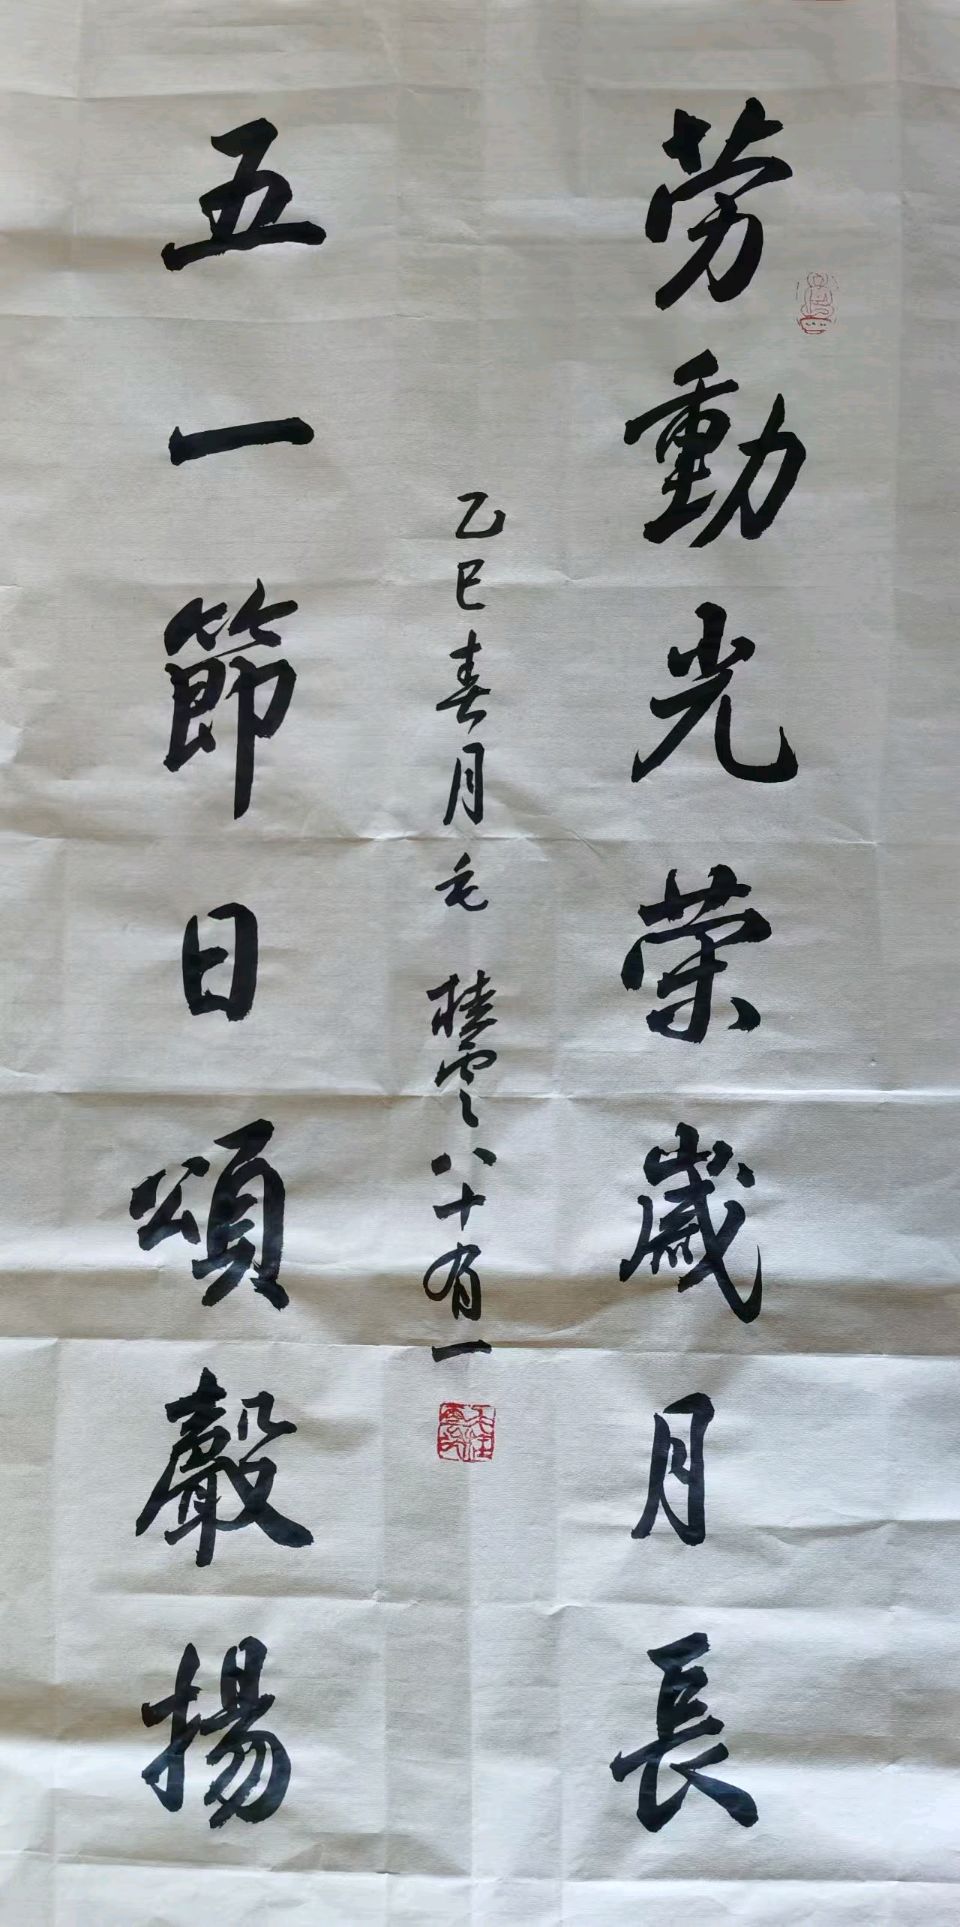 劳動光荣歲月長
五一節日頌聲揚
乙巳春月毛桂雲八十有一